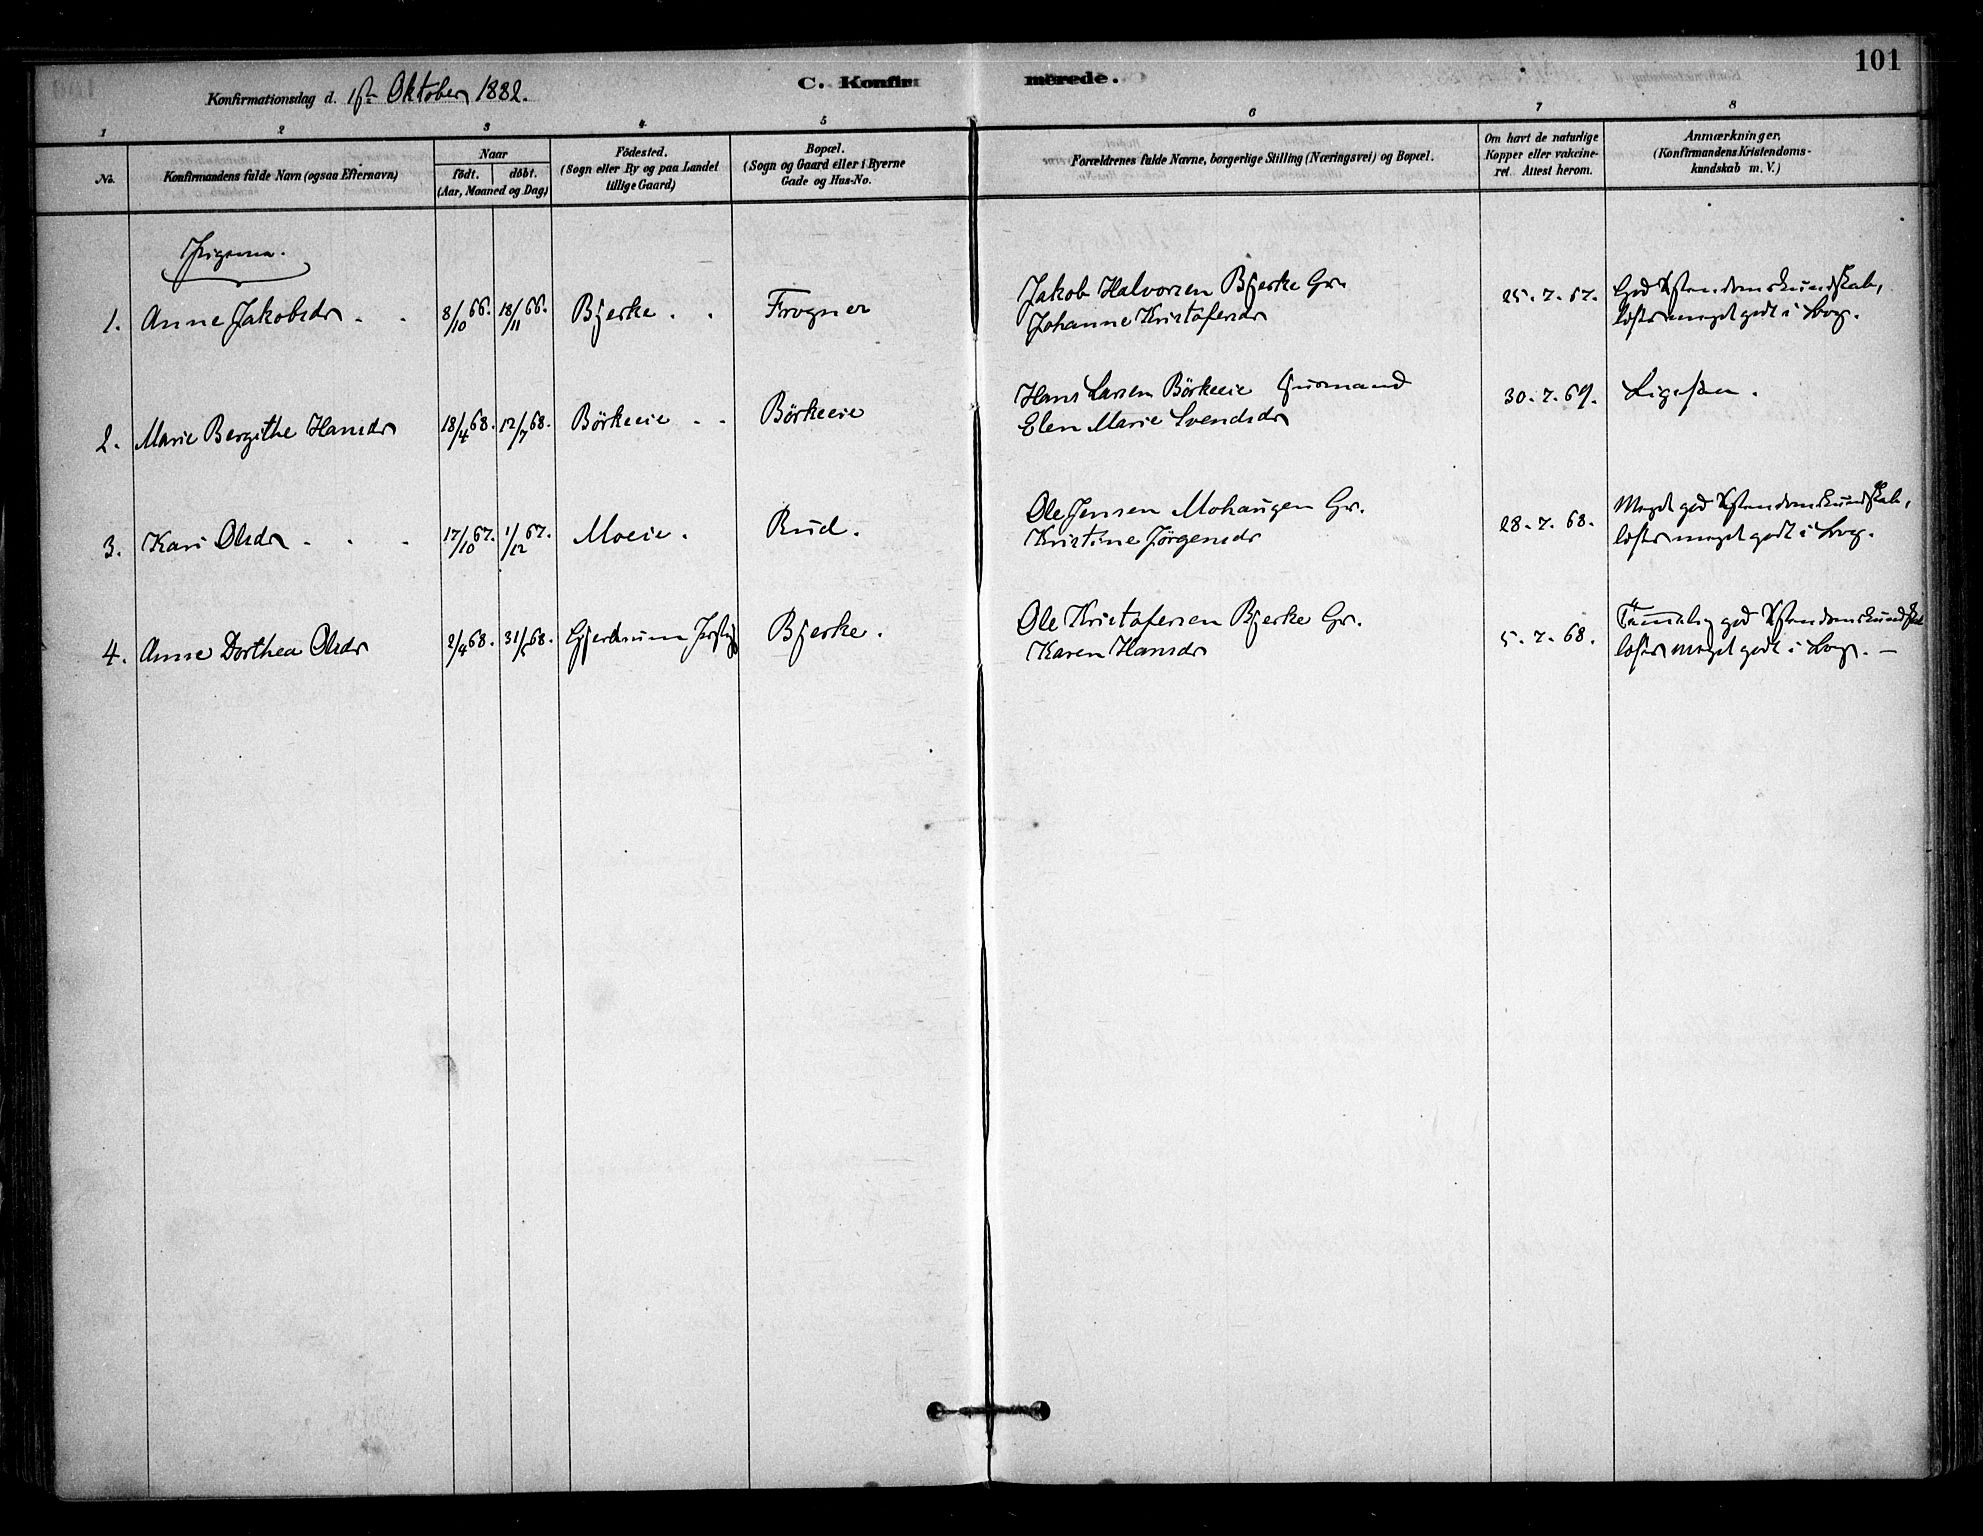 101
C. Konfirmerede.
Konfirmationsdag d. 1ste Oktober 1882.
1 2 3 4 5 6 7 8
No. Konfirmandens fulde Navn (ogsaa Efternavn) Naar födt. döbt. (Aar, Maaned og Dag)
Födested. (Sogn eller By og paa Landet tillige Gaard)
Bopæl. (Sogn og Gaard eller i Byerne Gade og Hus-No.
Forældrenes fulde Navne, borgerlige Stilling (Næringsvei) og Bopæl.
Om havt de naturlige Kopper eller vakcineret. Attest herom.
Anmærkninger. (Konfirmandens Kristendomskundskab m. V.)
Pigerne.
1. Anne Jakobsdr . . 8/10 66. 18/11 66. Bjerke . . Frogner Jakob Halvorsen Bjerke Gr. 25.7.67. God Xstendomskundskab,
Johanne Kristofersdr meget godt i Svog.
2. Marie Bergithe Hansdr 18/4 68. 12/7 68. Börkeeie . . Börkeeie Hans Larsen Börkeeie Husmand 30.7.69. Ligesaa.
Elen Marie Svendsdr
3. Kari Olsdr . . . 17/10 67. 1/12 67. Moeie . Rud . Ole Jensen Mohaugen Gr. 28.7.68. Meget god Xstendomskundskab,
Kristine Jörgensdr meget godt i
4. Anne Dorthea Olsdr 2/4 68. 31/5 68. Gjerdrum Bjerke . Ole Kristofersen Bjerke Gr. 5.7.68. Temmelig god Xstendomskundskab
Karen Hansdr meget godt i